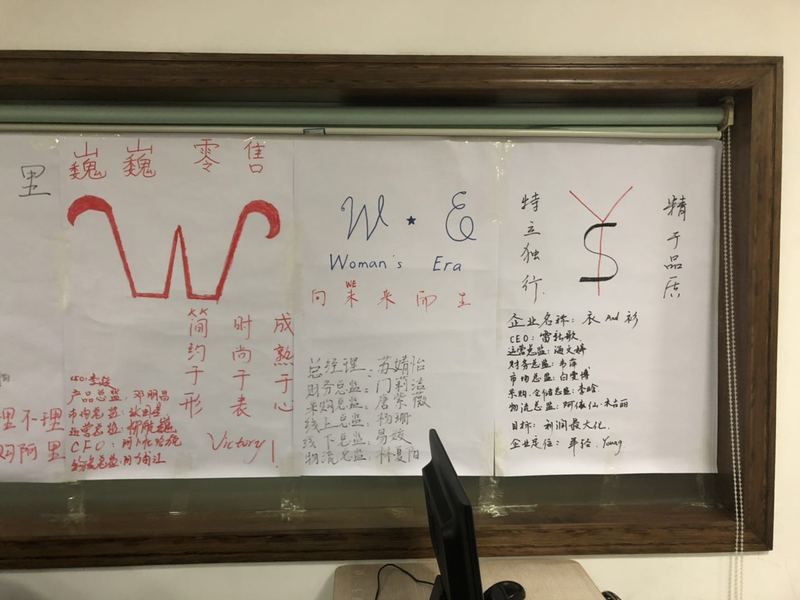 里
里不理
阿里
巍巍 零售
简约于形
时尚于表
成熟于心
产品总监：邓丽昌
市场总监：
运营总监：
CFO：
Victory!
W ★ E
Woman's Era
WE
向未来而生
总经理：苏婧怡
财务总监：门莉洁
采购总监：唐紫薇
线上总监：杨珊
线下总监：易姣
物流总监：林夏阳
特立独行
YS
精于品质
企业名称：衣 And 衫
CEO：雷敬歌
运营总监：海文婷
财务总监：韦萍
市场总监：白雪博
采购、仓储总监：李晗
物流总监：阿依仙·
目标：利润最大化
企业定位：年轻、Young